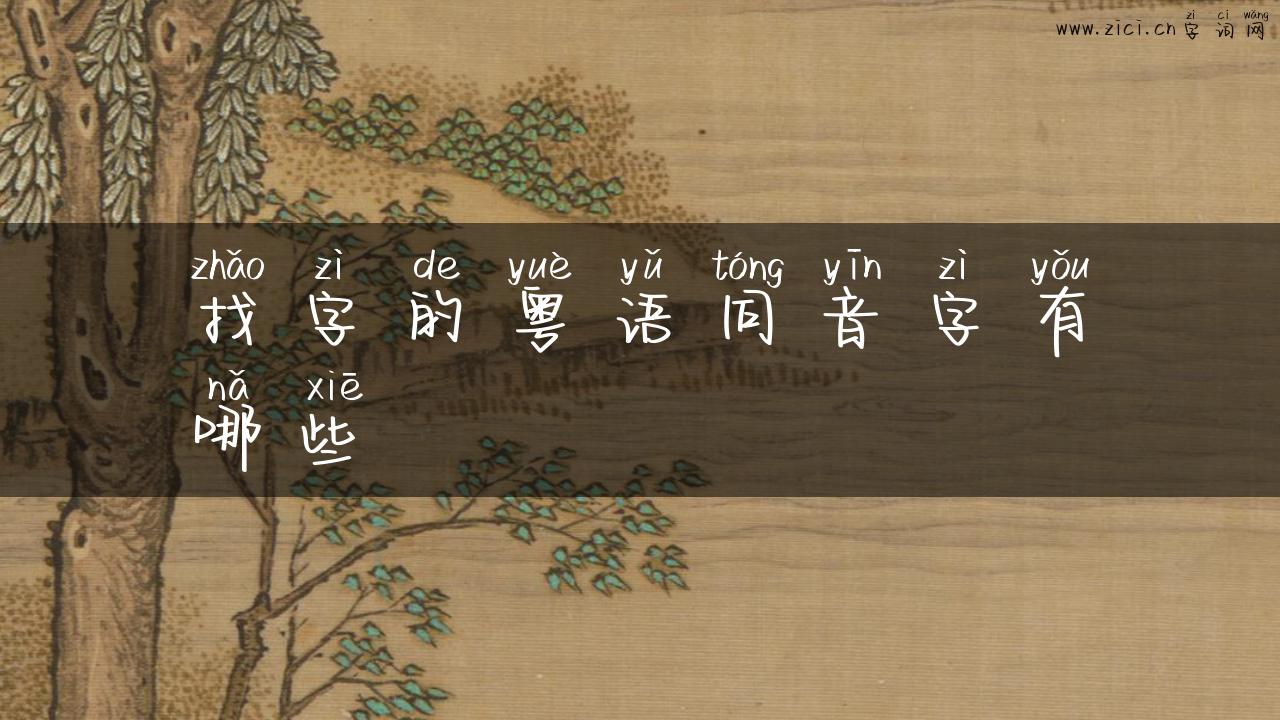 zì cí wǎng
www.zici.cn 字词网
zhǎo zì de yuè yǔ tóng yīn zì yǒu
找字的粤语同音字有
nǎ xiē
哪些